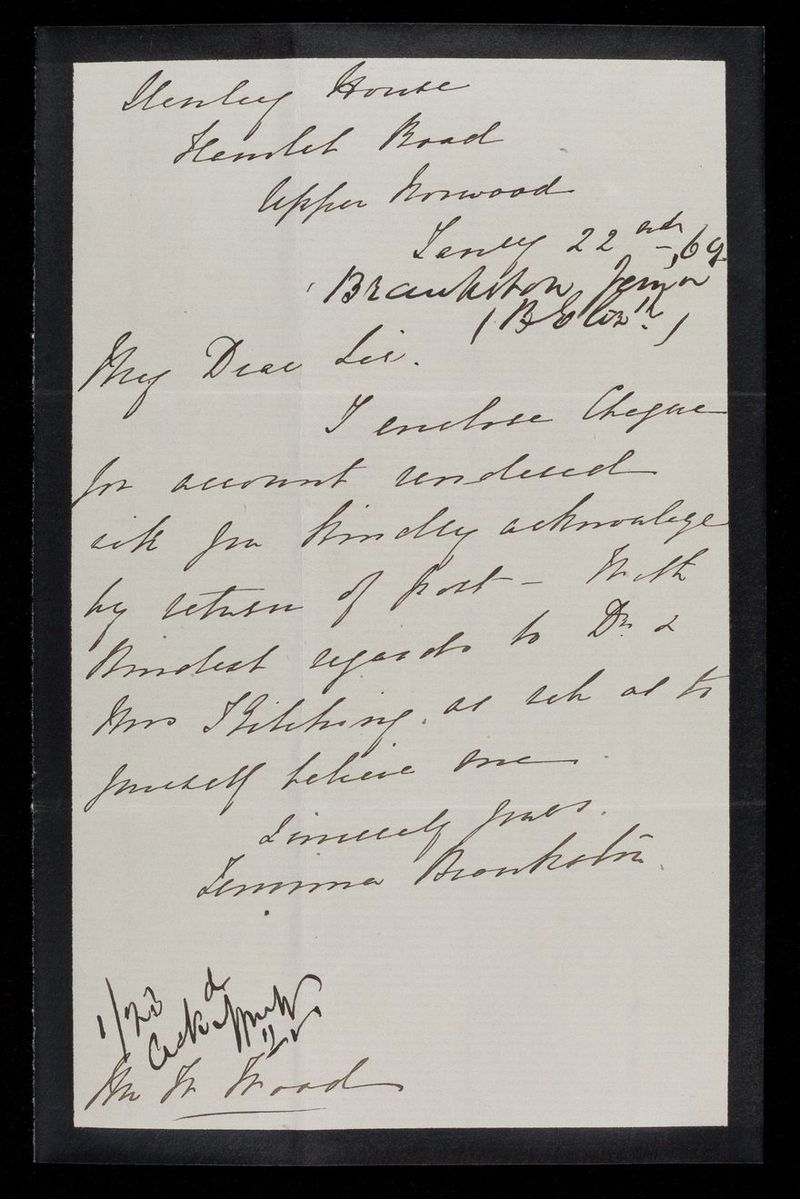 Henley House
Hamlet Road
Upper Norwood
Jany 22nd, 69
Brankston Jemima
My Dear Sir.
I enclose Cheque
for account rendered
ask you kindly acknowledge
by return of post – With
kindest regards to Dr &
Mrs Kitching. as well as to
yourself believe me
Sincerely yours.
Jemima Brankston.
1/23
Ackd
Mr W Wood